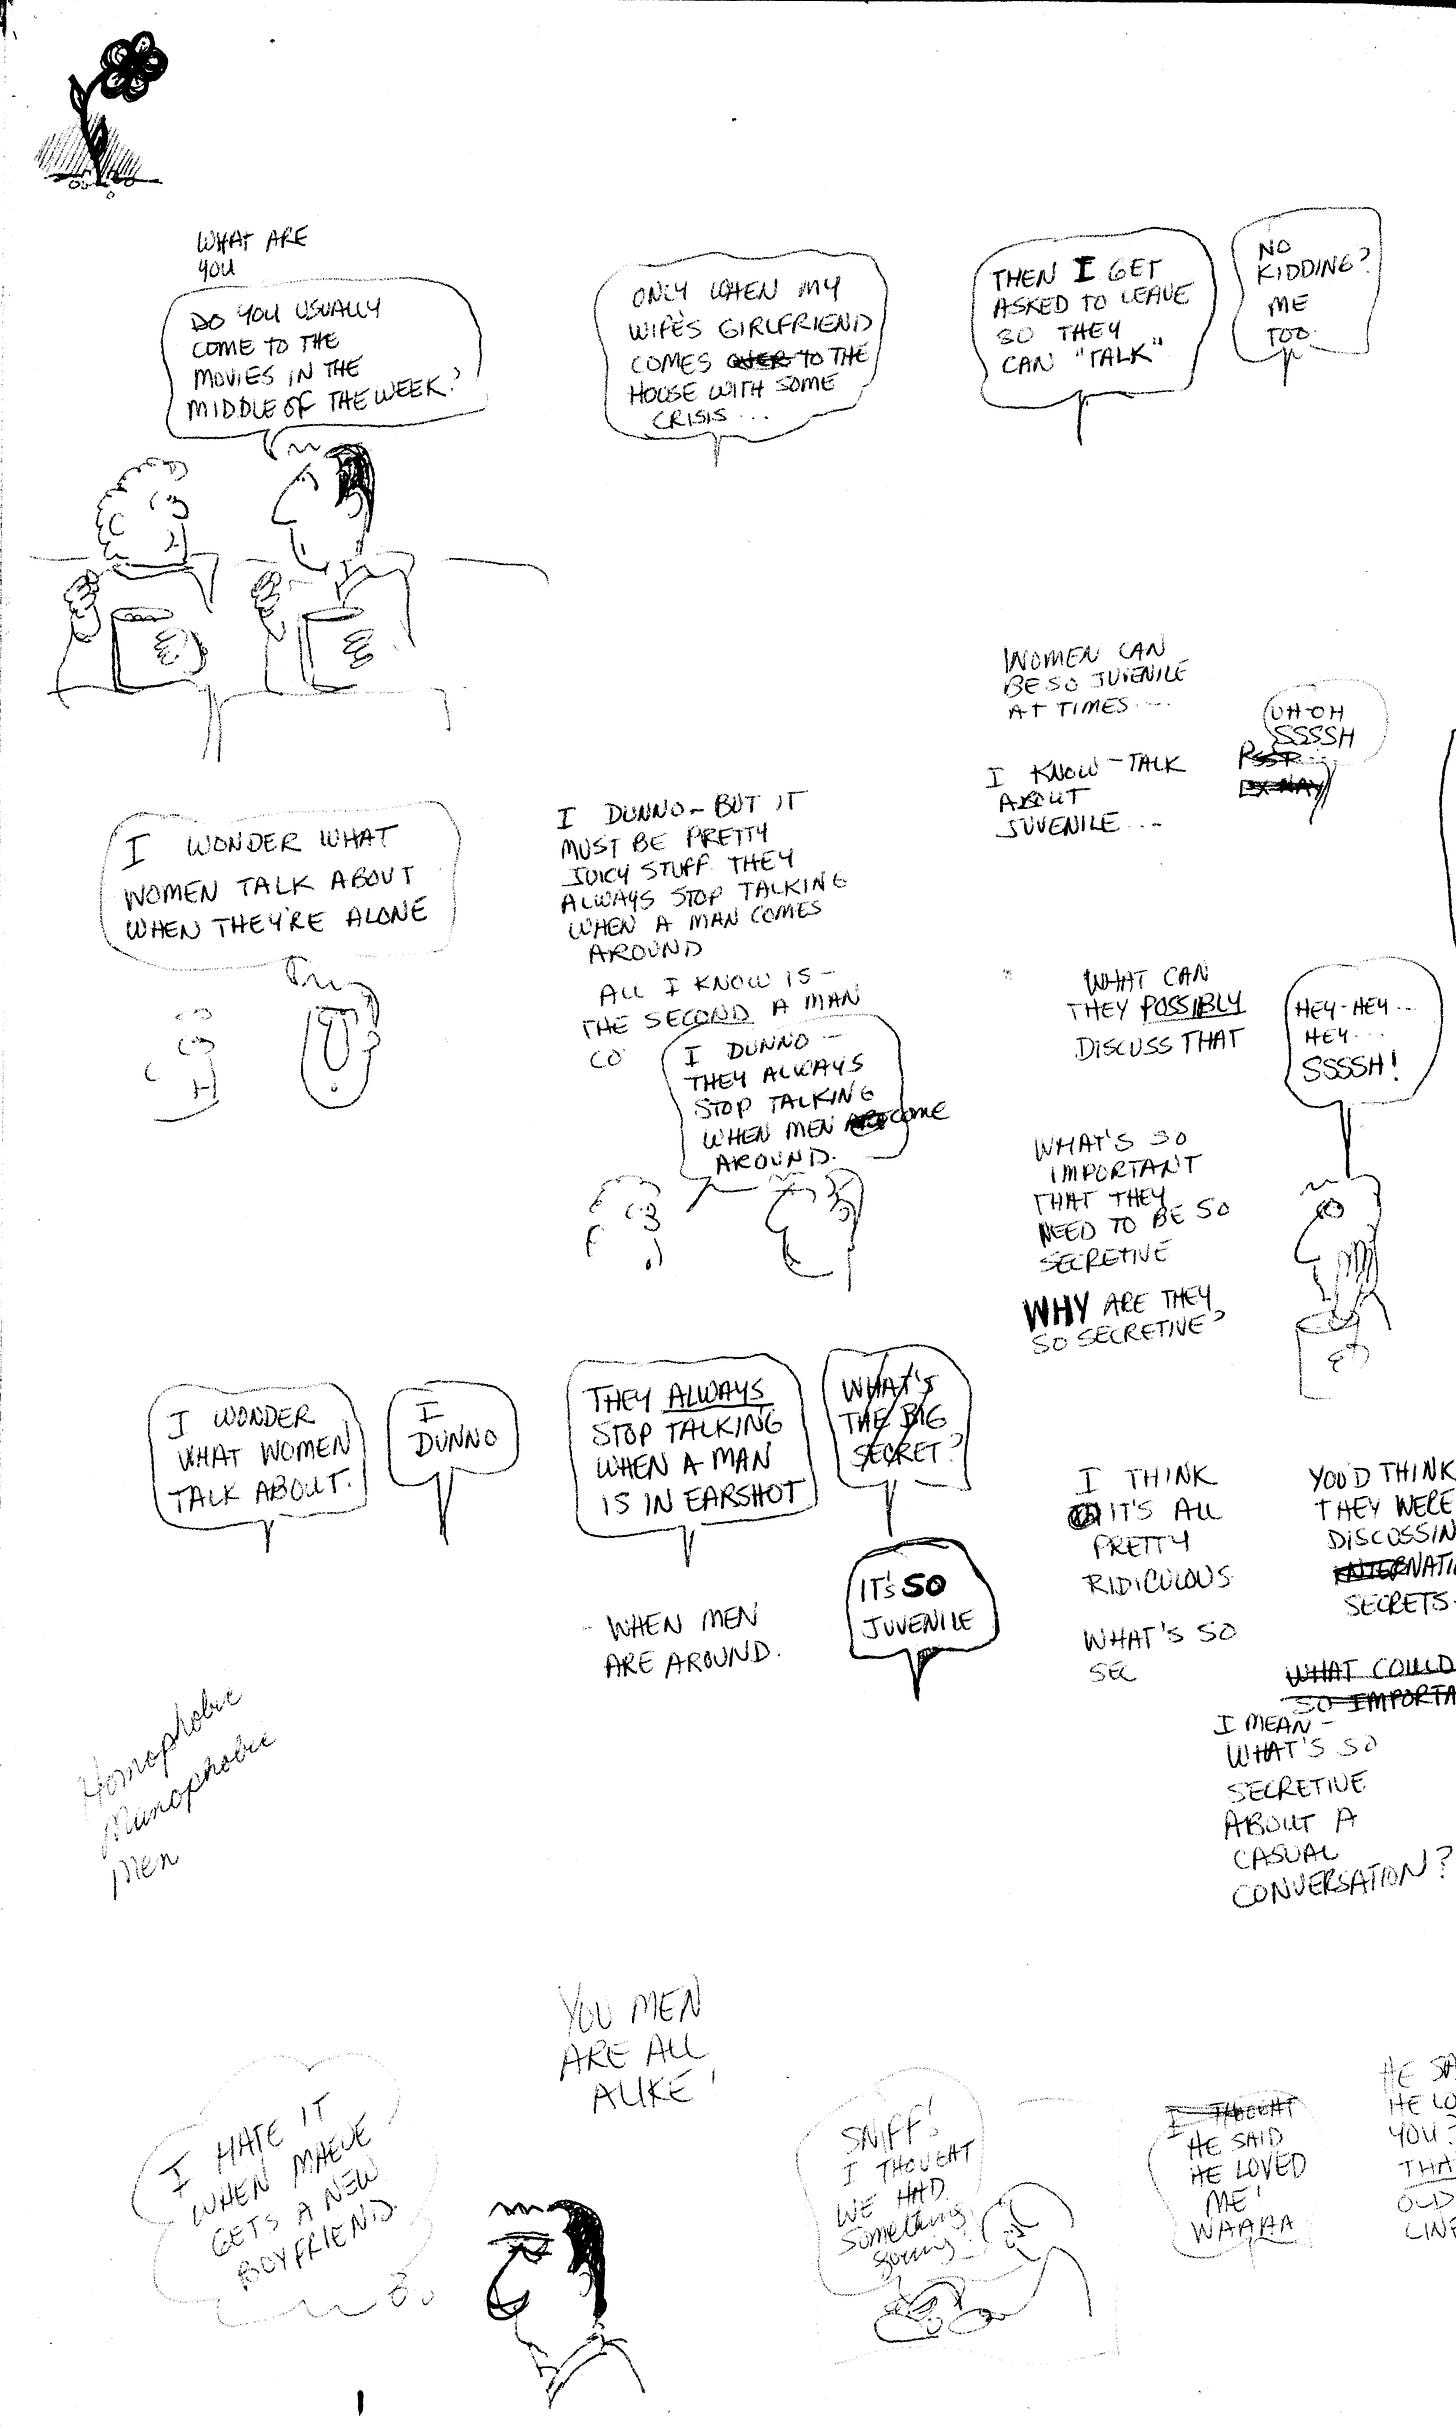 WHAT ARE
YOU
DO YOU USUALLY
COME TO THE
MOVIES IN THE
MIDDLE OF THE WEEK?
ONLY WHEN MY
WIFE'S GIRLFRIEND
COMES OVER TO THE
HOUSE WITH SOME
CRISIS...
THEN I GET
ASKED TO LEAVE
SO THEY
CAN "TALK"
NO
KIDDING?
ME
TOO.
WOMEN CAN
BE SO JUVENILE
AT TIMES....
I KNOW - TALK
ABOUT
JUVENILE...
UH-OH
SSSSH
PSST...
I WONDER WHAT
WOMEN TALK ABOUT
WHEN THEY'RE ALONE
I DUNNO - BUT IT
MUST BE PRETTY
JUICY STUFF THEY
ALWAYS STOP TALKING
WHEN A MAN COMES
AROUND
ALL I KNOW IS -
THE SECOND A MAN
CO
I DUNNO -
THEY ALWAYS
STOP TALKING
WHEN MEN COME
AROUND.
WHAT CAN
THEY POSSIBLY
DISCUSS THAT
HEY-HEY...
HEY...
SSSSH!
WHAT'S SO
IMPORTANT
THAT THEY
NEED TO BE SO
SECRETIVE
WHY ARE THEY
SO SECRETIVE?
I WONDER
WHAT WOMEN
TALK ABOUT.
I
DUNNO
THEY ALWAYS
STOP TALKING
WHEN A MAN
IS IN EARSHOT
WHAT'S
THE BIG
SECRET?
IT'S SO
JUVENILE
- WHEN MEN
ARE AROUND.
I THINK
IT'S ALL
PRETTY
RIDICULOUS
WHAT'S SO
SEC
YOU'D THINK
THEY WERE
DISCUSSIN
INTERNATI
SECRETS
WHAT COULD
SO IMPORTA
I MEAN -
WHAT'S SO
SECRETIVE
ABOUT A
CASUAL
CONVERSATION?
Homophobic
Munophobic
Men
YOU MEN
ARE ALL
ALIKE!
I HATE IT
WHEN MAEVE
GETS A NEW
BOYFRIEND.
SNIFF!
I THOUGHT
WE HAD
Something
going
I THOUGHT
HE SAID
HE LOVED
ME!
WAAAA
HE SA
HE LO
YOU?
THA
OLD
LINE